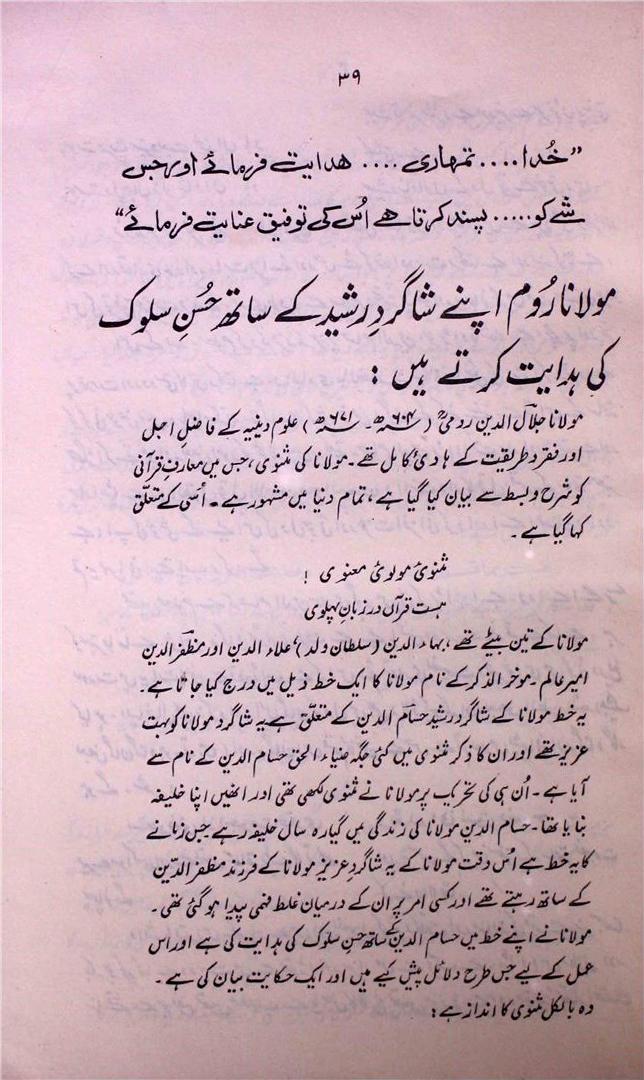 ۳۹
”خُدا.... تمہاری .... ھدایت فرمائے اور جس
شے کو ..... پسند کرتا ھے اُس کی توفیق عنایت فرمائے“
مولانا رُوم اپنے شاگردِ رشید کے ساتھ حُسنِ سلوک
کی ہدایت کرتے ہیں :
مولانا جلال الدین رومیؒ ( ۶۰۴ھ۔ ۶۷۱ھ ) علوم دینیہ کے فاضلِ اجل
اور فقر و طریقت کے ہادیٔ کامل تھے۔ مولانا کی مثنوی، جس میں معارفِ قرآنی
کو شرح و بسط سے بیان کیا گیا ہے، تمام دنیا میں مشہور ہے۔ اُسی کے متعلّق
کہا گیا ہے۔
مثنویٔ مولویٔ معنوی !
ہست قرآں در زبانِ پہلوی
مولانا کے تین بیٹے تھے، بہاء الدین (سلطان ولد) علاء الدین اور مظفر الدین
امیر عالم۔ موخر الذکر کے نام مولانا کا ایک خط ذیل میں درج کیا جاتا ہے۔
یہ خط مولانا کے شاگردِ رشید حسام الدین کے متعلّق ہے یہ شاگرد مولانا کو بہت
عزیز تھے اور ان کا ذکر مثنوی میں کئی جگہ ضیاء الحق حسام الدین کے نام سے
آیا ہے۔ اُن ہی کی تحریک پر مولانا نے مثنوی لکھی تھی اور انھیں اپنا خلیفہ
بنایا تھا۔ حسام الدین مولانا کی زندگی میں گیارہ سال خلیفہ رہے جس زمانے
کا یہ خط ہے اُس وقت مولانا کے یہ شاگردِ عزیز مولانا کے فرزند مظفر الدّین
کے ساتھ رہتے تھے اور کسی امر پر ان کے درمیان غلط فہمی پیدا ہو گئی تھی۔
مولانا نے اپنے خط میں حسام الدین کے ساتھ حسنِ سلوک کی ہدایت کی ہے اور اس
عمل کے لیے جس طرح دلائل پیش کیے ہیں اور ایک حکایت بیان کی ہے۔
وہ بالکل مثنوی کا انداز ہے :